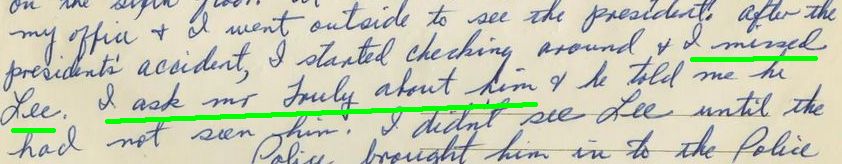 on the sixth floor.
my office & I went outside to see the president. after the
presidents' accident, I started checking around & I missed
Lee. I ask mr Truly about him & he told me he
had not seen him. I didn't see Lee until the
Police brought him in to the Police